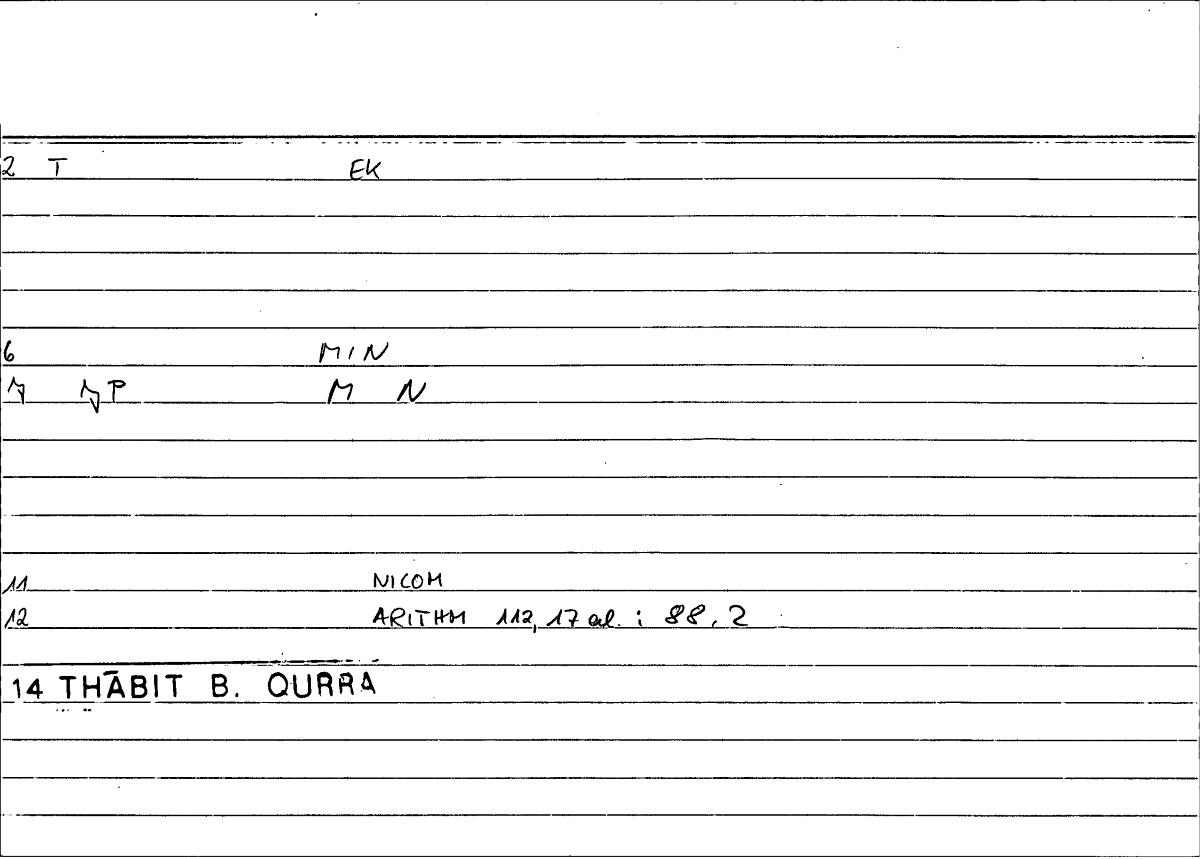 2 T EK
6 MIN
P M N
11 NICOM
12 ARITHM 112, 17 al. : 88, 2
14 THĀBIT B. QURRA